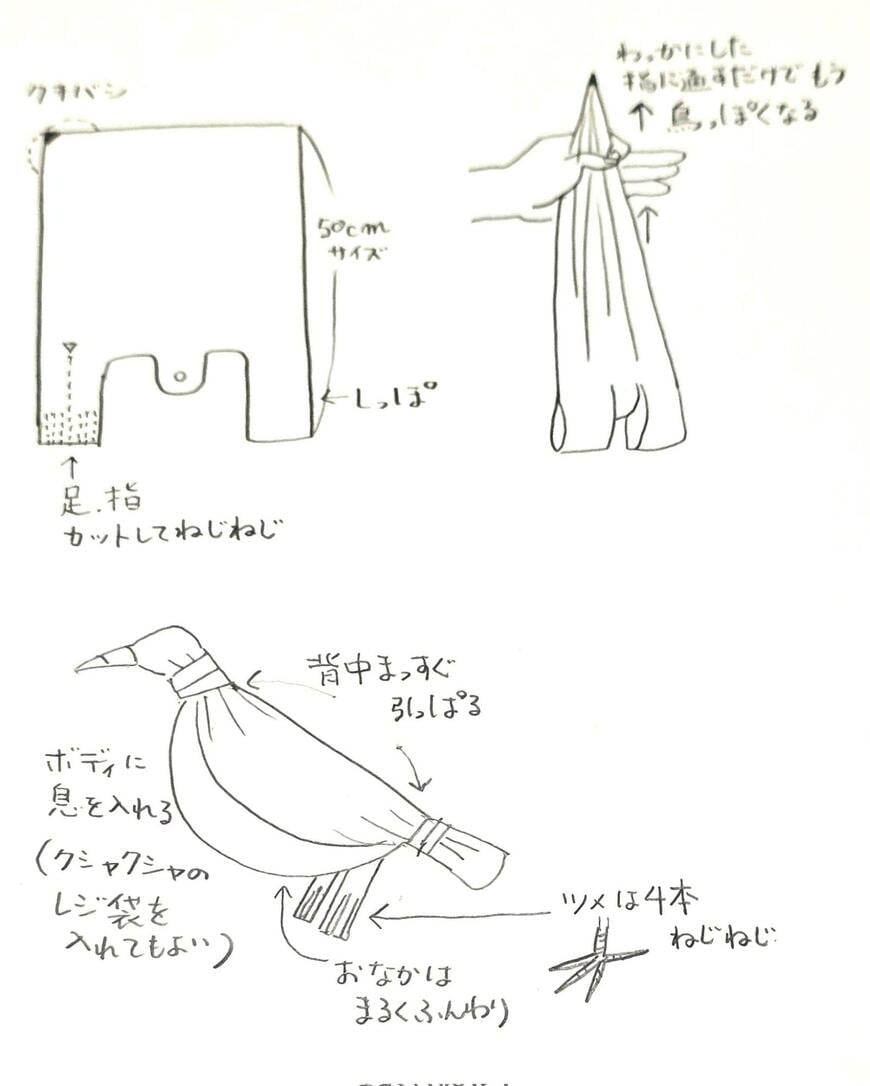 クチバシ
50cm
サイズ
←しっぽ
↑
足.指
カットしてねじねじ
わっかにした
指に通すだけで もう
↑ 鳥っぽくなる
背中まっすぐ
引っぱる
ボディに
息を入れる
(クシャクシャの
レジ袋を
入れてもよい)
おなかは
まるくふんわり
ツメは4本
ねじねじ